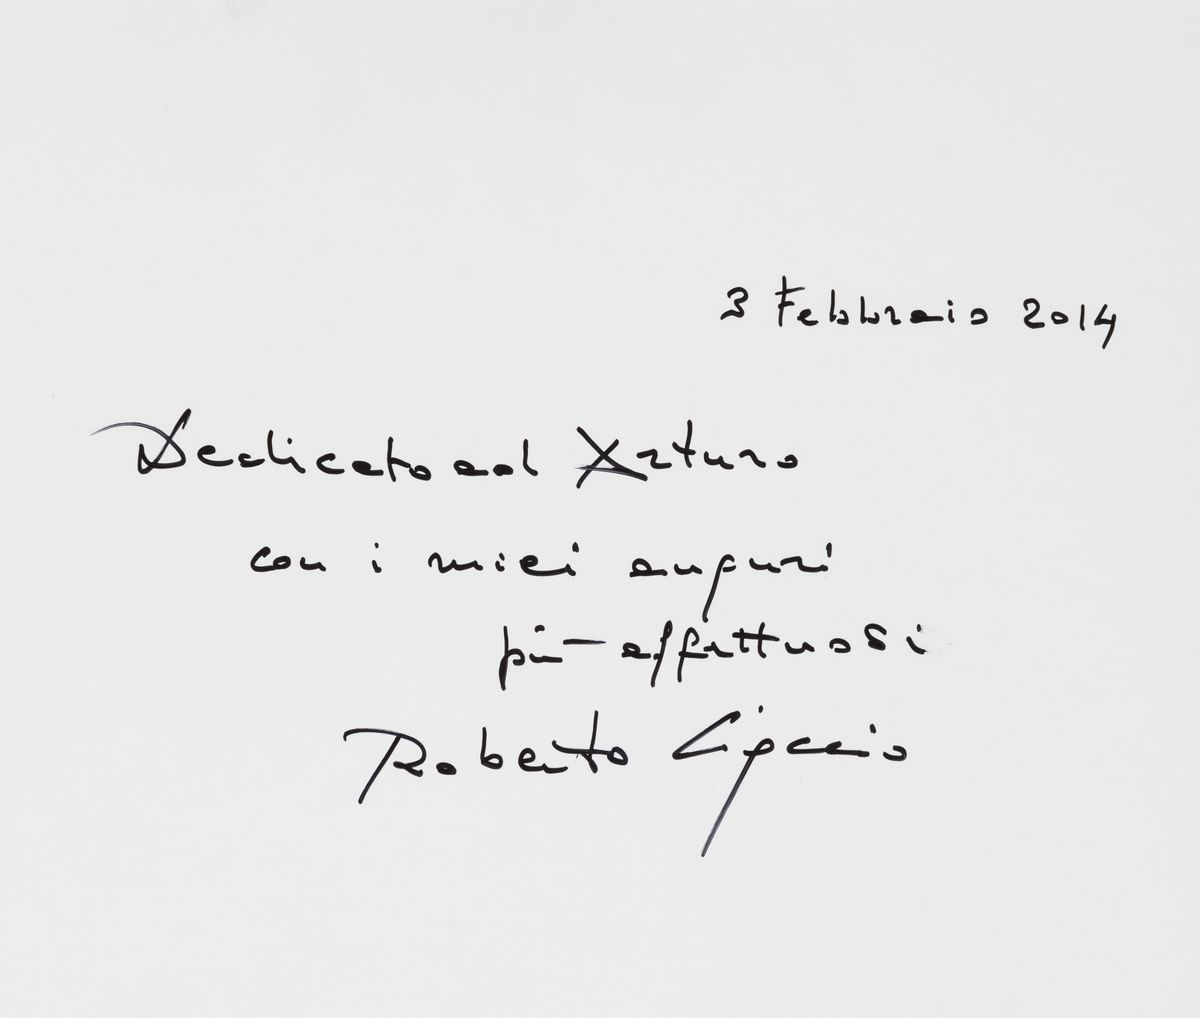 3 Febbraio 2014
Dedicato ad Arturo
con i miei auguri
più affettuosi
Roberto Ciaccio